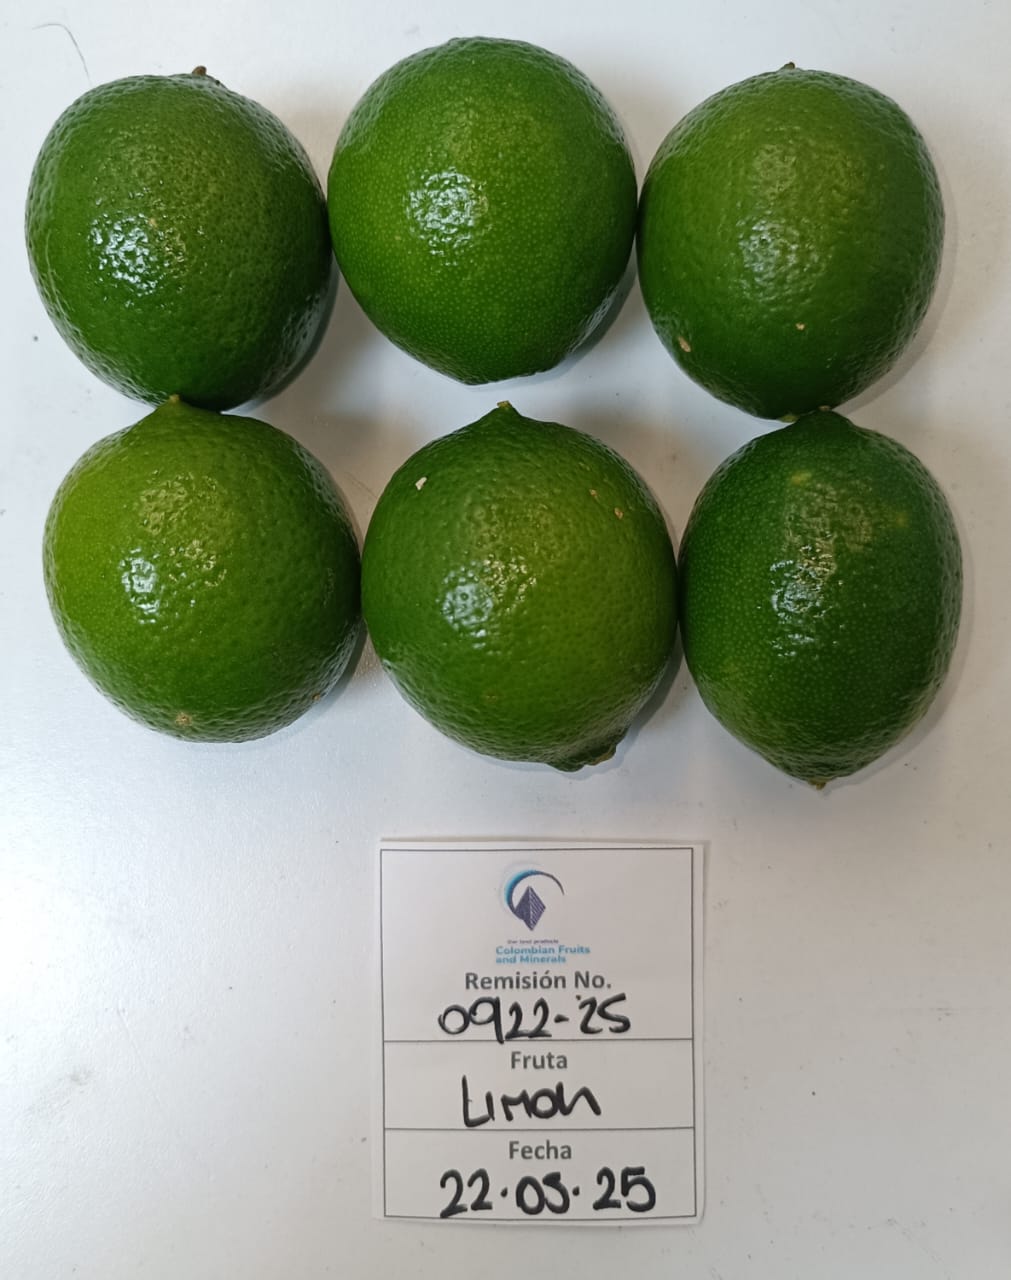 Our best products
Colombian Fruits
and Minerals
Remisión No.
0922-25
Fruta
Limon
Fecha
22.05.25